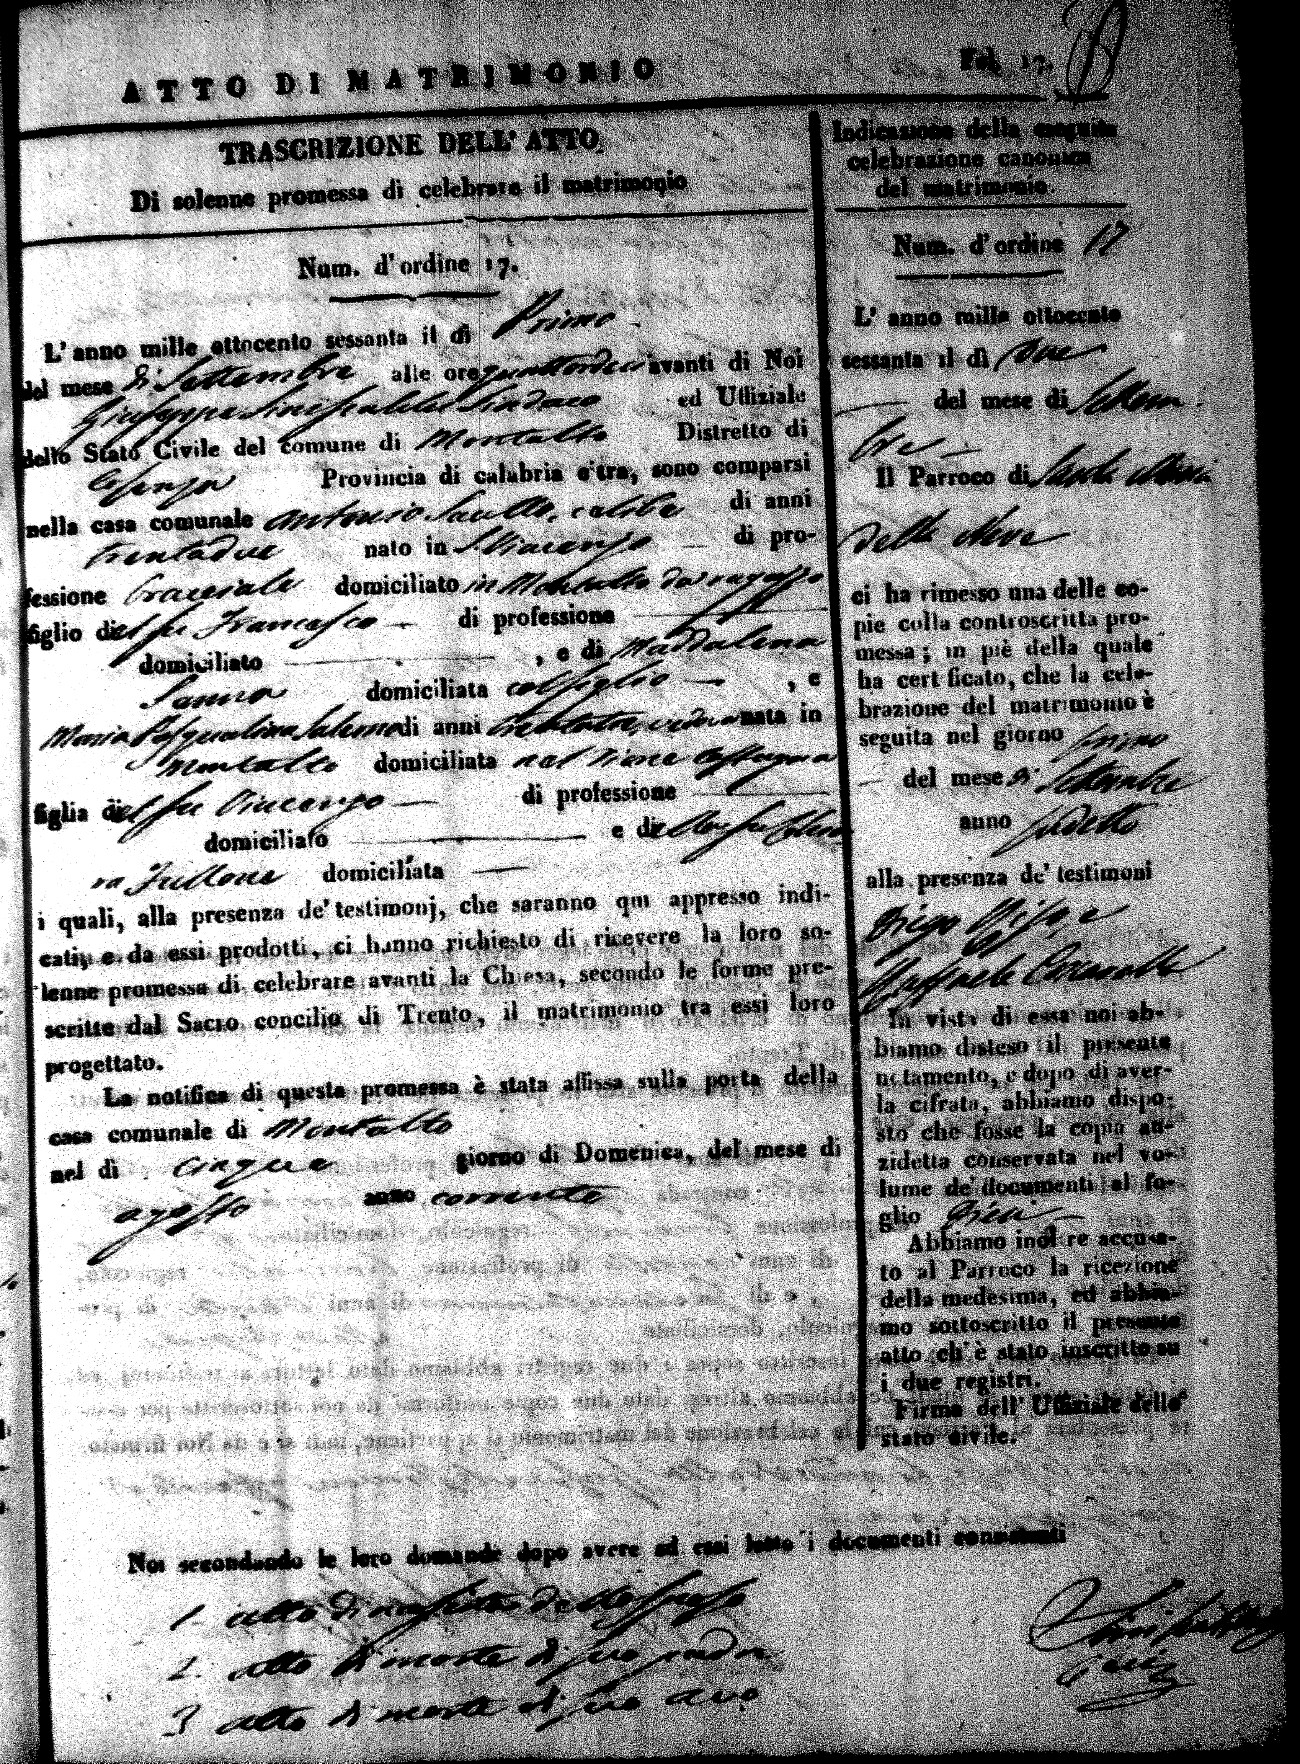 ATTO DI MATRIMONIO
Fol. 17.
TRASCRIZIONE DELL' ATTO
Di solenne promessa di celebrare il matrimonio
Num. d' ordine 17.
L' anno mille ottocento sessanta il dì Primo
del mese di Settembre alle ore quattordici avanti di Noi
Giuseppe Sinda­co ed Uffiziale
dello Stato Civile del comune di Montalto Distretto di
Cosenza Provincia di calabria citra, sono comparsi
nella casa comunale Antonio celibe di anni
trentadue nato in di pro-
fessione bracciale domiciliato in Montalto da ragazzo
figlio del fu Francesco di professione
domiciliato , e di Maddalena
Sanna domiciliata col figlio , e
Maria Pasqualina Salerno di anni vedova nata in
Montalto domiciliata nel
figlia del fu Vincenzo di professione
domiciliato e di
ra Fullone domiciliata
i quali, alla presenza de' testimonj, che saranno qui appresso indi-
cati, e da essi prodotti, ci hanno richiesto di ricevere la loro so-
lenne promessa di celebrare avanti la Chiesa, secondo le forme pre-
scritte dal Sacro concilio di Trento, il matrimonio tra essi loro
progettato.
La notifica di questa promessa è stata affissa sulla porta della
casa comunale di Montalto
nel dì cinque giorno di Domenica, del mese di
agosto anno corrente
Noi secondando le loro domande dopo avere ad essi letto i documenti consistenti
1. atto di nascita dello sposo
2. atto di morte di suo padre
3 atto di morte di suo avo
Indicazione della seguita
celebrazione canonica
del matrimonio
Num. d' ordine 17
L' anno mille ottocento
sessanta il dì due
del mese di Settem
bre
Il Parroco di Santa Maria
della Neve
ci ha rimesso una delle co-
pie colla controscritta pro-
messa; in piè della quale
ha certificato, che la cele-
brazione del matrimonio è
seguita nel giorno primo
del mese di Settembre
anno sudetto
alla presenza de' testimoni
Raffaele
In vista di essa noi ab-
biamo disteso il presente
notamento, e dopo di aver-
la cifrata, abbiamo dispo-
sto che fosse la copia an-
zidetta conservata nel vo-
lume de' documenti al fo-
glio dieci
Abbiamo inoltre accusa-
to al Parroco la ricezione
della medesima, ed abbia-
mo sottoscritto il presente
atto ch' è stato inscritto su
i due registri.
Firma dell' Uffiziale dello
stato civile.